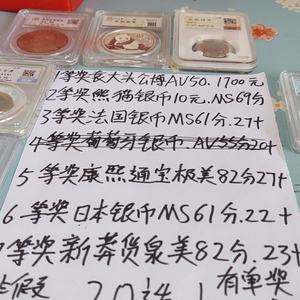 1等奖袁大头公博AV50.1700元
2等奖熊猫银币10元.MS69分
3等奖法国银币MS61分.27+
4等奖葡萄牙银币.AV55分20+
5等奖康熙通宝极美82分27+
6等奖日本银币MS61分.22+
7等奖新莽货泉美82分.23+
有单奖